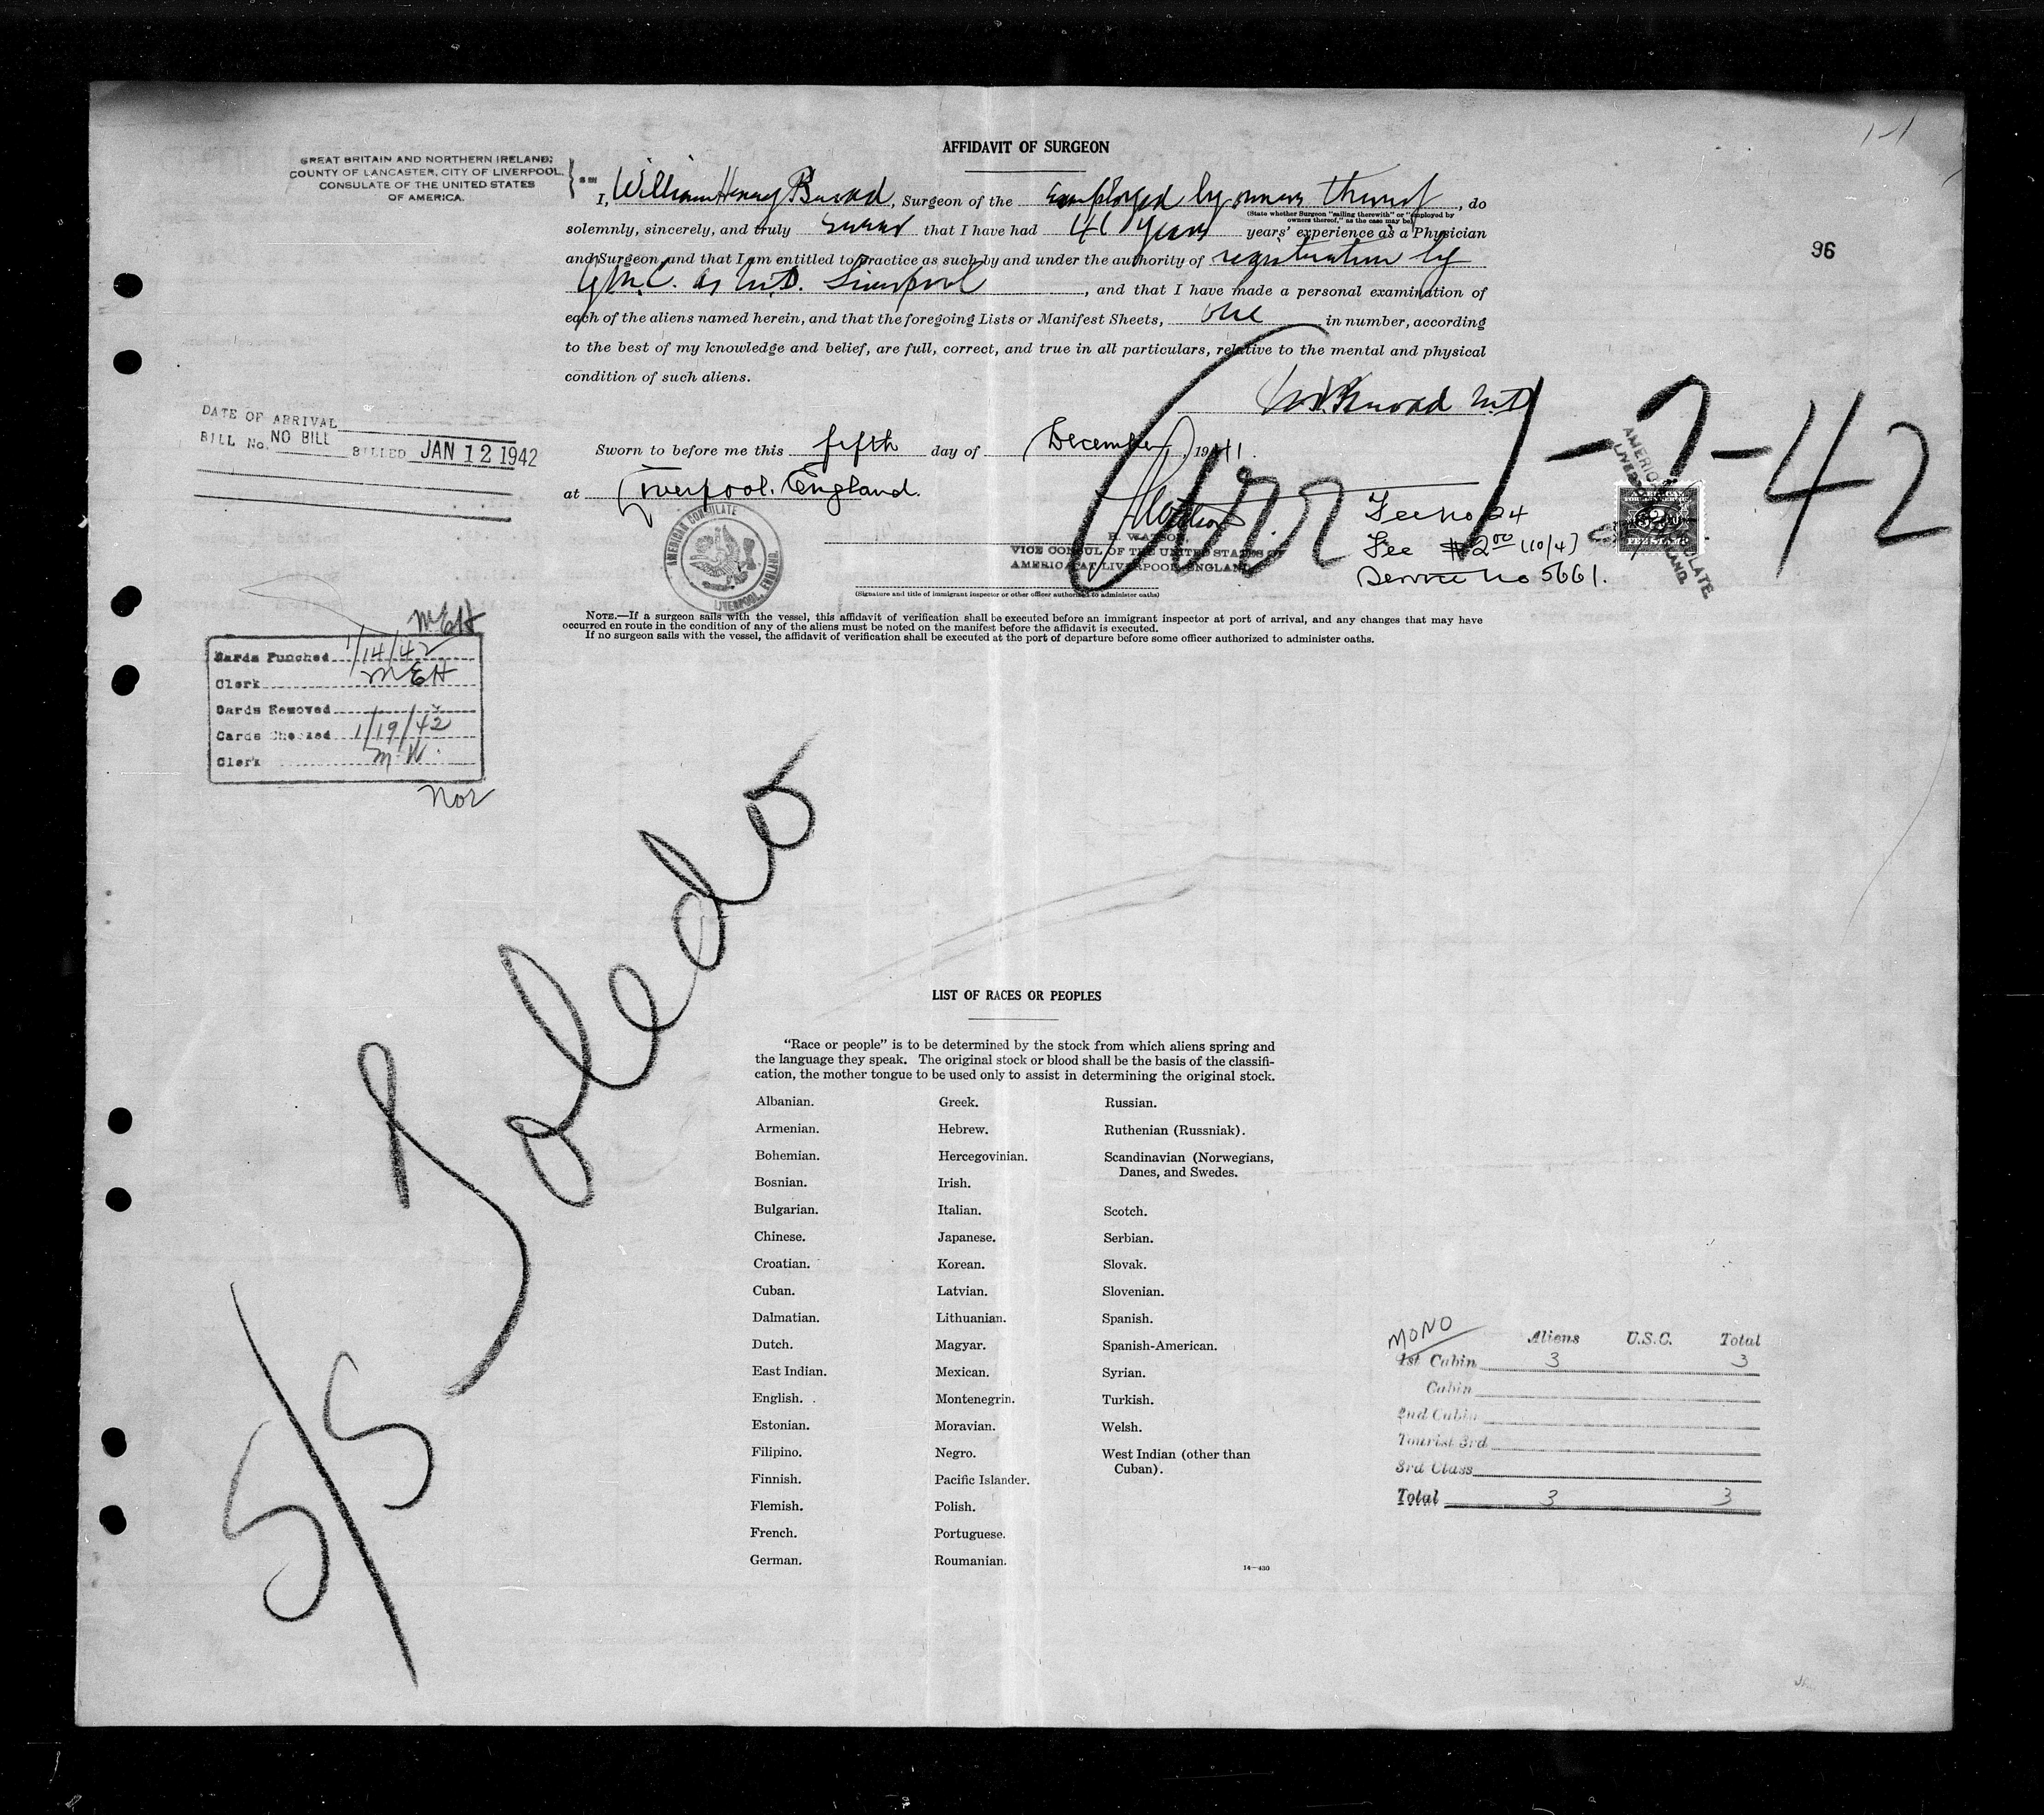 AFFIDAVIT OF SURGEON
GREAT BRITAIN AND NORTHERN IRELAND;
COUNTY OF LANCASTER, CITY OF LIVERPOOL,
CONSULATE OF THE UNITED STATES
OF AMERICA.
96
I, William Henry, Surgeon of the employed by owners thereof, do
(State whether Surgeon "sailing therewith" or "employed by
owners thereof," as the case may be)
solemnly, sincerely, and truly swear that I have had years years' experience as a Physician
and Surgeon, and that I am entitled to practice as such by and under the authority of registration by
G.M.C. as M.D. Liverpool, and that I have made a personal examination of
each of the aliens named herein, and that the foregoing Lists or Manifest Sheets, one in number, according
to the best of my knowledge and belief, are full, correct, and true in all particulars, relative to the mental and physical
condition of such aliens.
M.D.
Arr 1-7-42
DATE OF ARRIVAL
BILL No. NO BILL BILLED JAN 12 1942
Sworn to before me this fifth day of December, 1941.
at Liverpool, England.
AMERICAN CONSULATE
LIVERPOOL, ENGLAND.
E. WATSON,
VICE CONSUL OF THE UNITED STATES OF
AMERICA AT LIVERPOOL, ENGLAND
Fee no 24
Fee $2.00 (10/4)
Service no 5661.
AMERICAN
FOREIGN SERVICE
$2.00
FEE STAMP
(Signature and title of immigrant inspector or other officer authorized to administer oaths)
NOTE.—If a surgeon sails with the vessel, this affidavit of verification shall be executed before an immigrant inspector at port of arrival, and any changes that may have
occurred en route in the condition of any of the aliens must be noted on the manifest before the affidavit is executed.
If no surgeon sails with the vessel, the affidavit of verification shall be executed at the port of departure before some officer authorized to administer oaths.
MEH
Cards Punched 1/14/42
Clerk MEH
Cards Removed
Cards Checked 1/19/42
Clerk M.W.
Nor
S/S Toledo
LIST OF RACES OR PEOPLES
"Race or people" is to be determined by the stock from which aliens spring and
the language they speak. The original stock or blood shall be the basis of the classifi-
cation, the mother tongue to be used only to assist in determining the original stock.
Albanian. Greek. Russian.
Armenian. Hebrew. Ruthenian (Russniak).
Bohemian. Hercegovinian. Scandinavian (Norwegians,
Danes, and Swedes.
Bosnian. Irish.
Bulgarian. Italian. Scotch.
Chinese. Japanese. Serbian.
Croatian. Korean. Slovak.
Cuban. Latvian. Slovenian.
Dalmatian. Lithuanian. Spanish.
Dutch. Magyar. Spanish-American.
East Indian. Mexican. Syrian.
English. Montenegrin. Turkish.
Estonian. Moravian. Welsh.
Filipino. Negro. West Indian (other than
Cuban).
Finnish. Pacific Islander.
Flemish. Polish.
French. Portuguese.
German. Roumanian.
14—430
MONO Aliens U.S.C. Total
1st Cabin 3 3
Cabin
2nd Cabin
Tourist 3rd
3rd Class
Total 3 3